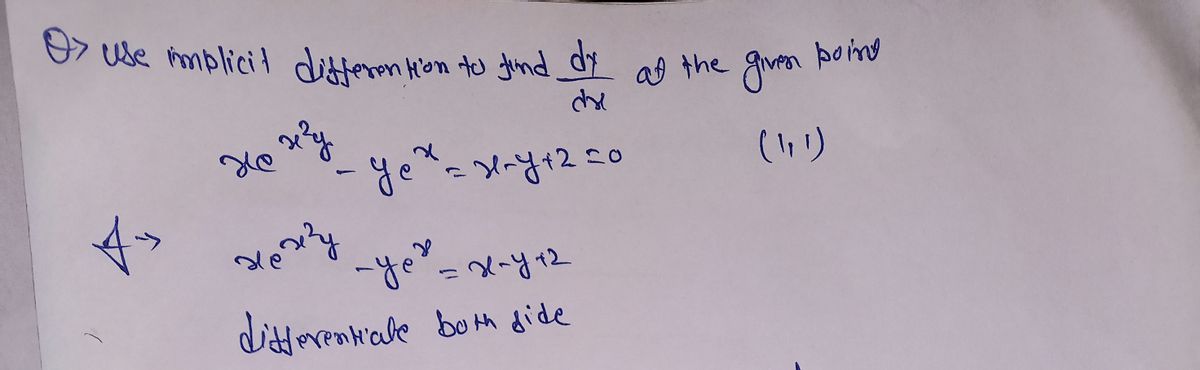 Q> use implicit differention to find dy/dx at the given point
xe^{x²y} - ye^x = x-y+2 = 0 (1, 1)
A-> xe^{x²y} - ye^x = x-y+2
differentiate both side